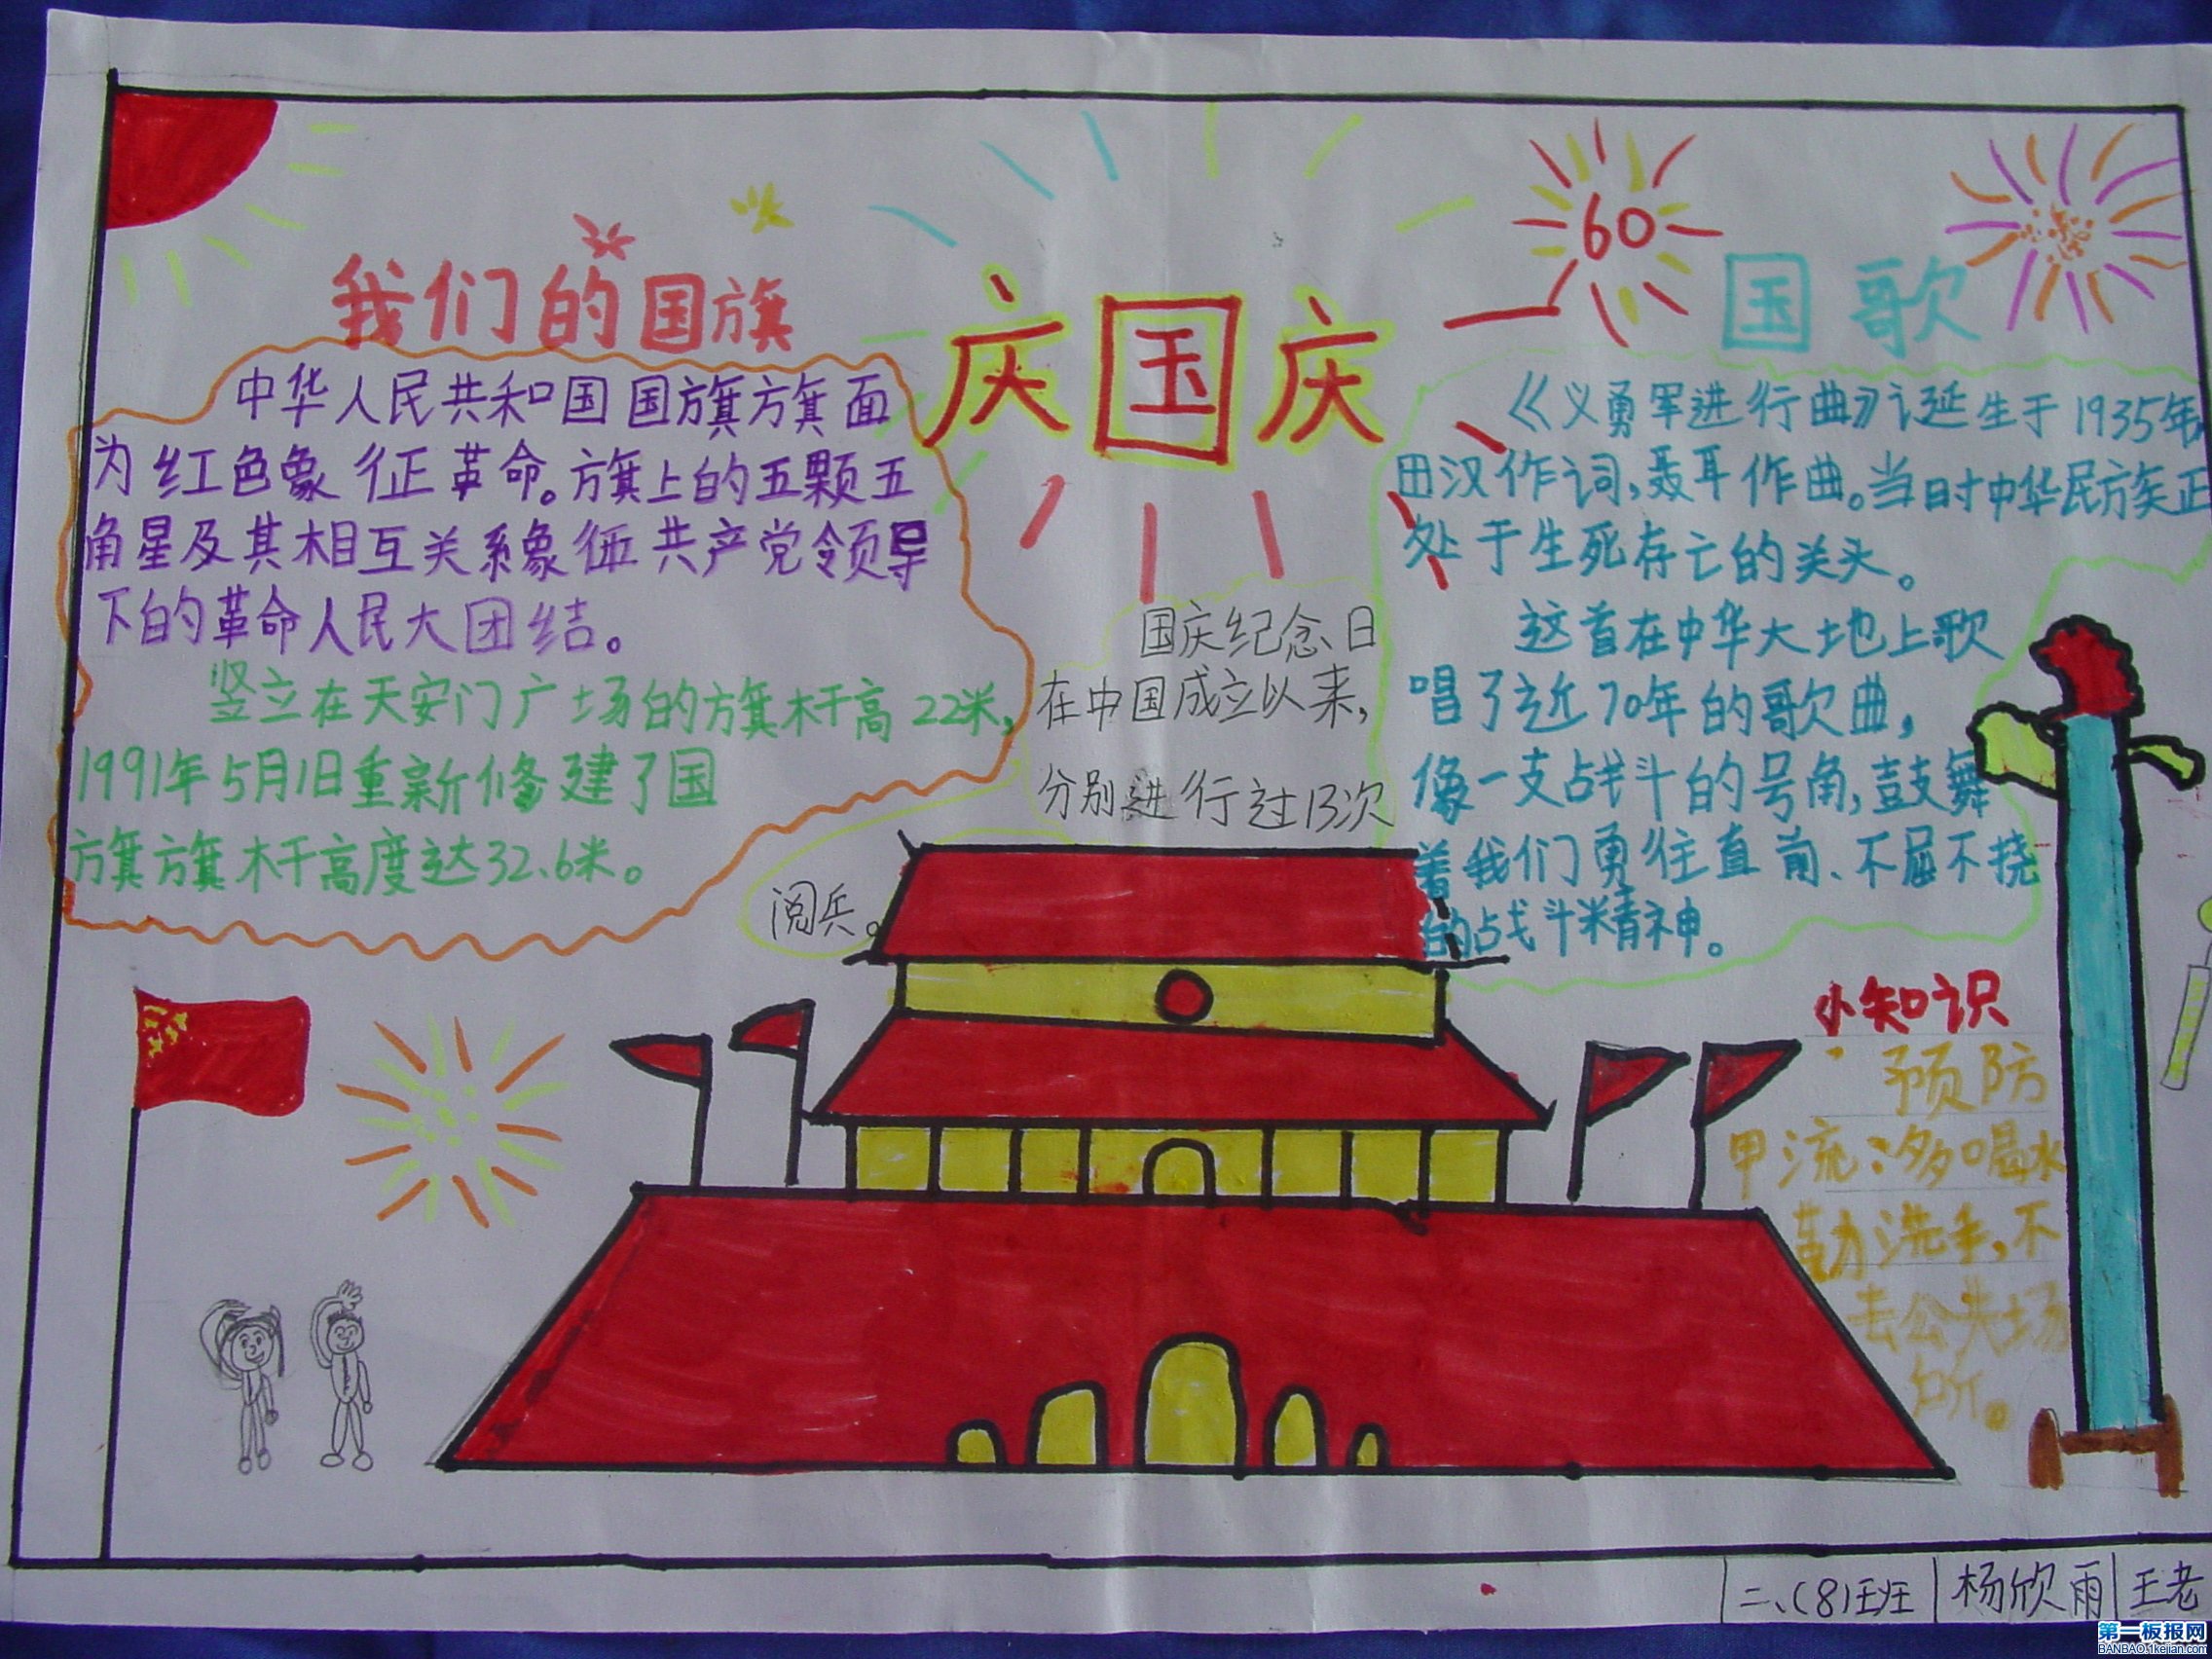 我们的国旗
中华人民共和国国旗旗面
为红色象征革命。旗上的五颗五
角星及其相互关系象征共产党领导
下的革命人民大团结。
竖立在天安门广场的旗杆高22米,
1991年5月1日重新修建了国
旗旗杆高度达32.6米。
庆国庆
国庆纪念日
在中国成立以来,
分别进行过13次
阅兵。
60
国歌
《义勇军进行曲》诞生于1935年
田汉作词,聂耳作曲。当时中华民族正
处于生死存亡的关头。
这首在中华大地上歌
唱了近70年的歌曲,
像一支战斗的号角,鼓舞
着我们勇往直前、不屈不挠
的战斗精神。
小知识
预防
甲流:多喝水
勤洗手,不
去公共场
所。
二、(8)班 杨欣雨 王老
第一板报网
BANBAO.1kejian.com